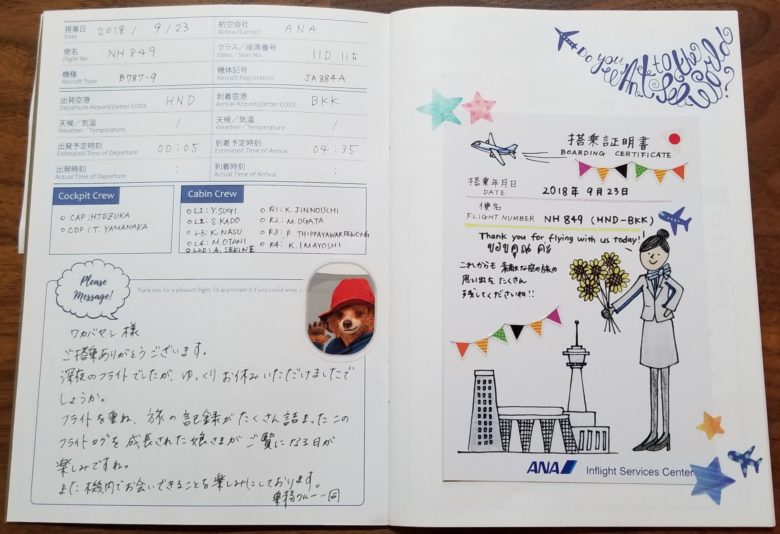 搭乗日 Date 2018 / 9 / 23 航空会社 Airline (Carrier) ANA
便名 Flight No. NH 849 クラス／座席番号 Class／Seat No.
機種 Aircraft Type B787-9 機体記号 Aircraft Registration JA884A
出発空港 Departure Airport/3letter CODE HND 到着空港 Arrival Airport/3letter CODE BKK
天候／気温 Weather／Temperature / 天候／気温 Weather／Temperature /
出発予定時刻 Estimated Time of Departure 00:05 到着予定時刻 Estimated Time of Arrival 04:35
出発時刻 Actual Time of Departure : 到着時刻 Actual Time of Arrival :
Cockpit Crew
CAP: H.TEZUKA
COP: T. YAMANAKA
Cabin Crew
L1: Y. SUGI R1: K. JINNOUCHI
L2: S. KADO R2: M. OGATA
L3: K. NASU R3: P. THIPPAYAWAREEWONG
L4: M. OTANI R4: K. IMAYOSHI
A. SEKINE
Please Message!
Thank you for a pleasant flight. I'd appreciate it if you could write
ワカバヤシ様
ご搭乗ありがとうございます。
深夜のフライトでしたが、ゆっくりお休みいただけましたで
しょうか。
フライトを重ね、旅の記録がたくさん詰まったこの
フライトログを成長された娘さまがご覧になる日が
楽しみですね。
また機内でお会いできることを楽しみにしております。
乗務クルー一同
Do you
搭乗証明書
BOARDING CERTIFICATE
搭乗年月日
DATE 2018年 9月 23日
便名
FLIGHT NUMBER NH 849 (HND-BKK)
Thank you for flying with us today!
これからも 素敵な空の旅の
思い出を たくさん
残してくださいね!!
ANA Inflight Services Center